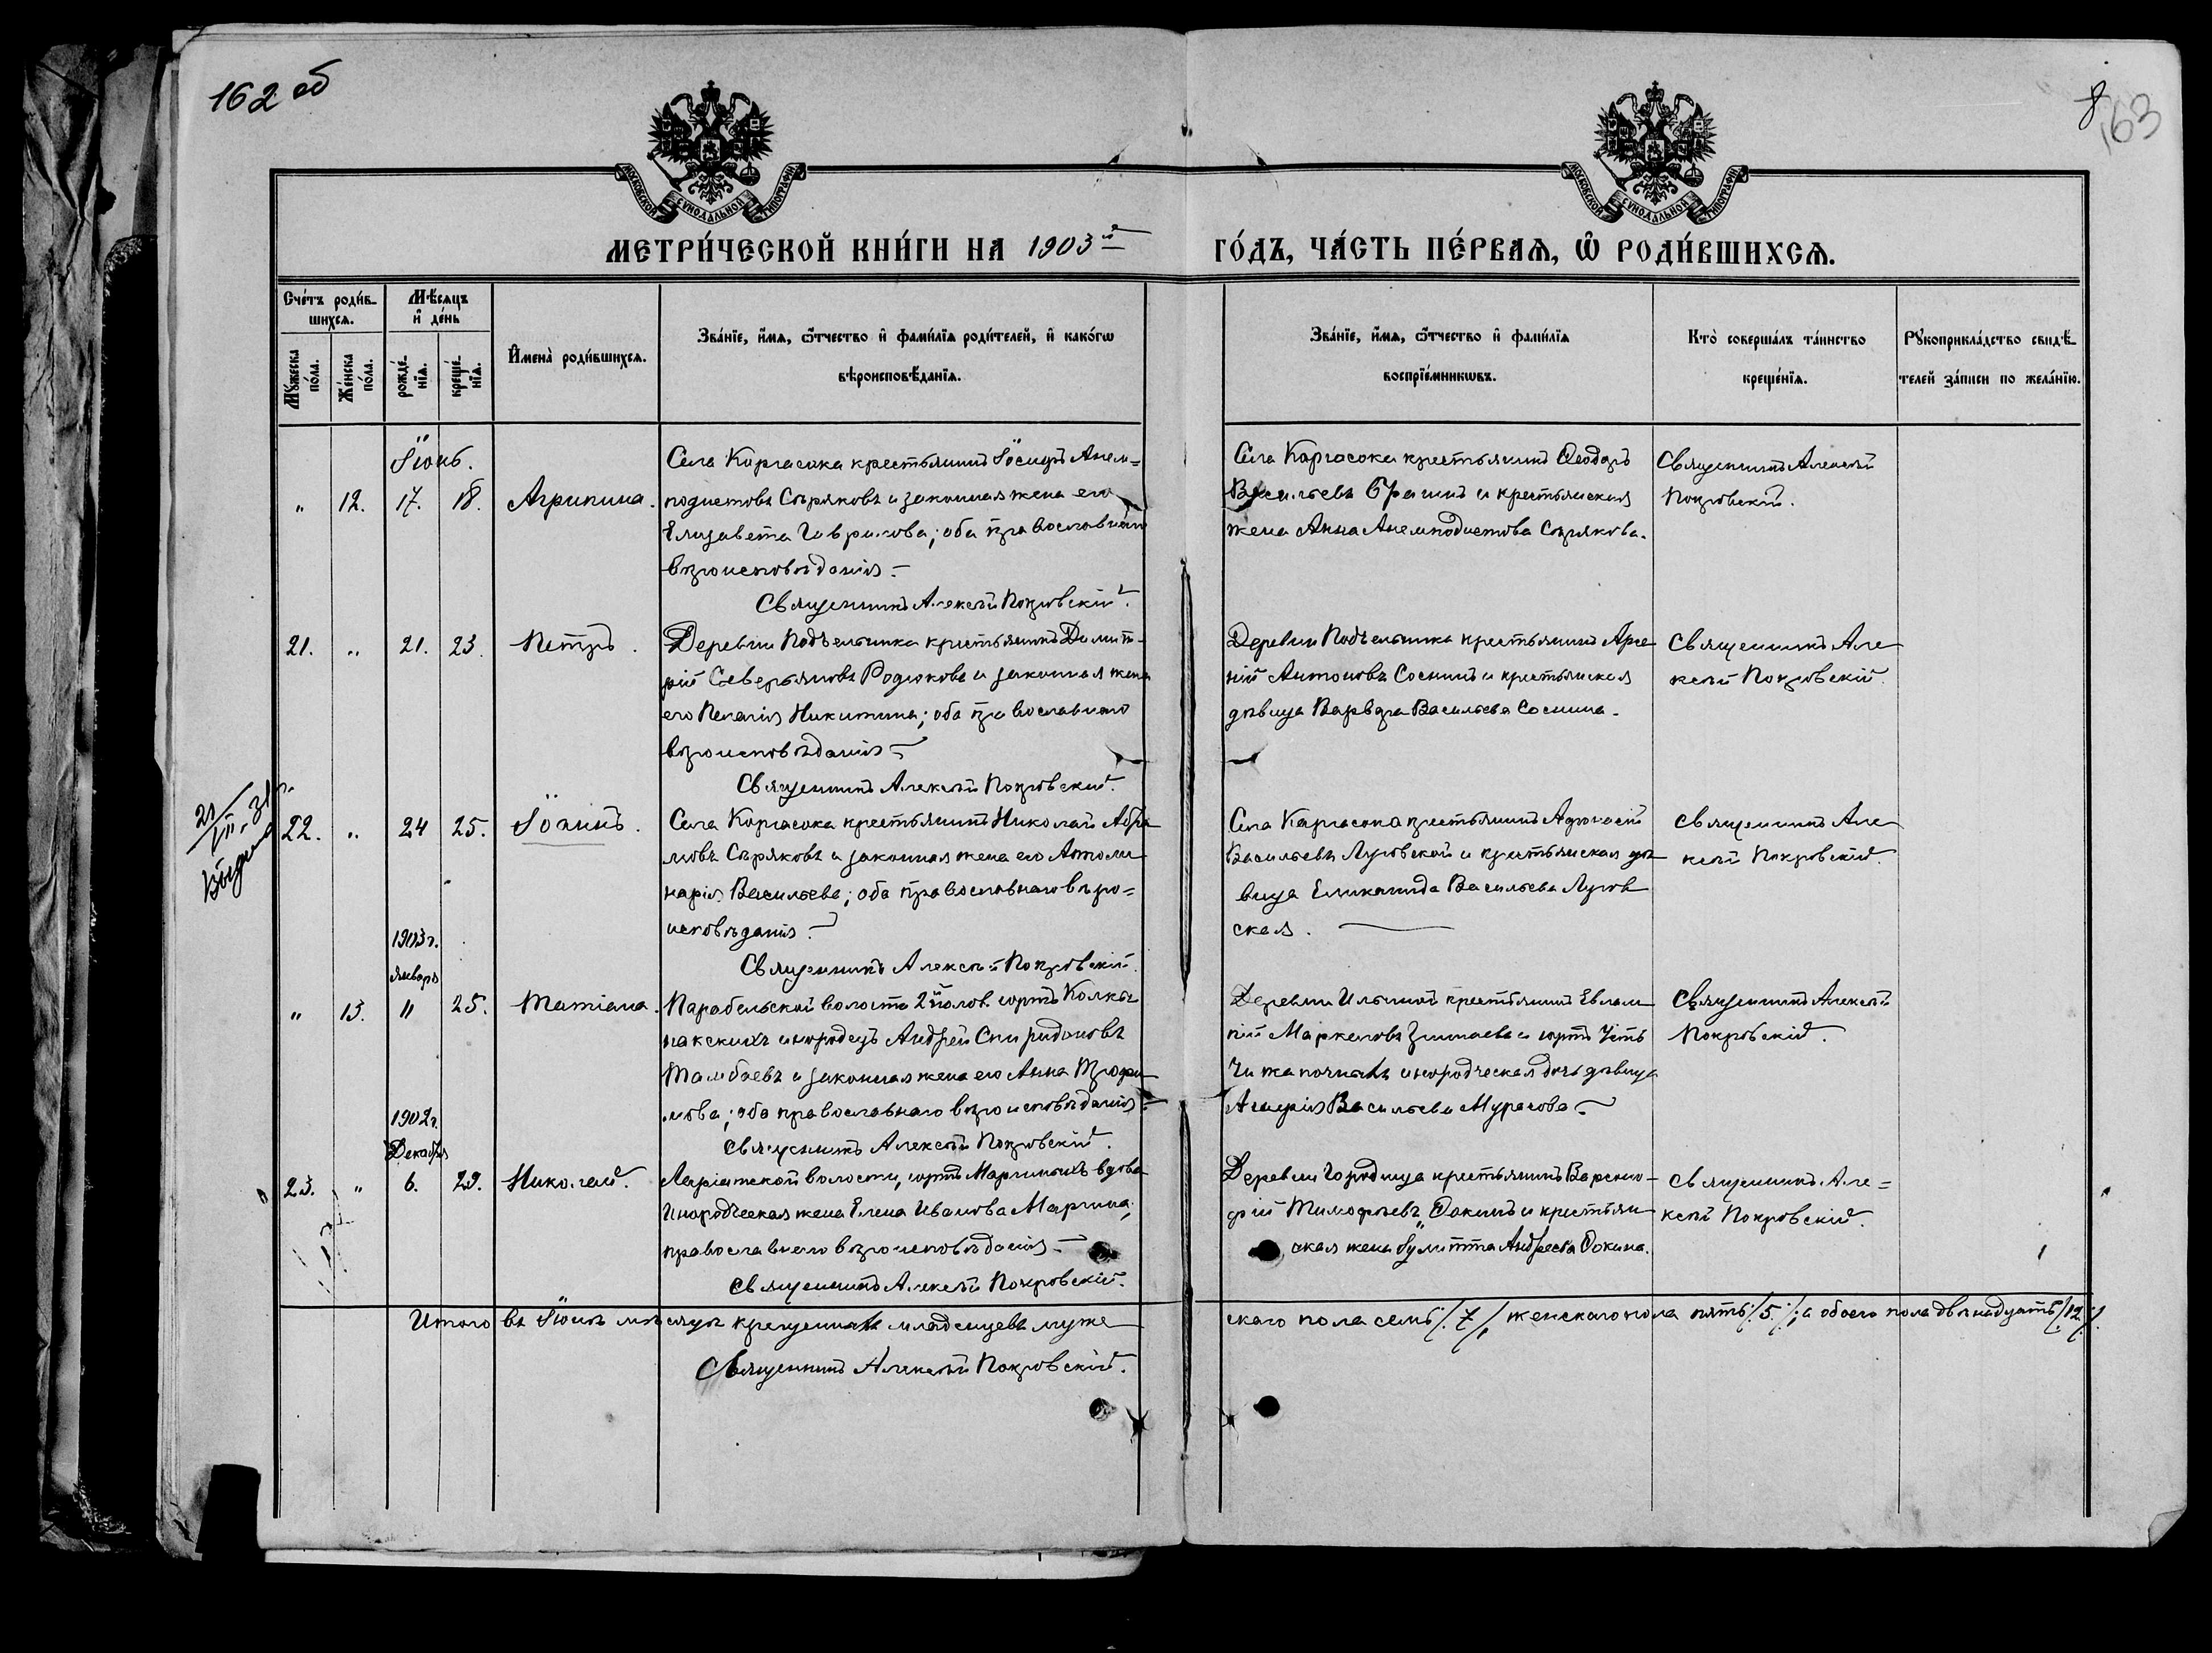 162 об
8
163
МОСКОВСКОЙ СѴНОДАЛЬНОЙ ТИПОГРАФІИ
МОСКОВСКОЙ СѴНОДАЛЬНОЙ ТИПОГРАФІИ
МЕТРИ́ЧЕСКОЙ КНИ́ГИ НА 1903й ГО́ДЪ, ЧА́СТЬ ПЕ́РВАѦ, Ѡ҆ РОДИ́ВШИХСѦ.
Сче́тъ роди́в-
шихсѧ.
Мѣ́сѧцъ
и҆ де́нь
Мꙋ́жеска
по́ла.
Же́нска
по́ла.
рожде́-
нїѧ.
креще́-
нїѧ.
И҆мена̀ роди́вшихсѧ.
Зва́нїе, и҆́мѧ, ѻ҆́тчество и҆ фами́лїѧ роди́телей, и҆ како́гѡ
вѣроисповѣ́данїѧ.
Зва́нїе, и҆́мѧ, ѻ҆́тчество и҆ фами́лїѧ
воспрїе́мникѡвъ.
Кто̀ соверша́лъ та́инство
креще́нїѧ.
Рꙋкоприкла́дство свидѣ́-
телей за́писи по жела́нїю.
Іюнь.
" 12. 17. 18. Агрипина.
Села Каргасока крестьянинъ Іосифъ Анем=
подистовъ Сѣряковъ и законная жена его
Елизавета Гаврилова; оба православнаго
вѣроисповѣданія.
Священникъ Алексѣй Покровскій.
Села Каргасока крестьянинъ Ѳеодоръ
Васильевъ и крестьянская
жена Анна Анемподистова Сѣрякова.
Священникъ Алексѣй
Покровскій.
21. " 21. 23. Петръ.
Деревни Подъельника крестьянинъ Димит-
рій Северьяновъ Родюковъ и законная жена
его Пелагія Никитина; оба православнаго
вѣроисповѣданія
Священникъ Алексѣй Покровскій.
Деревни Подъельника крестьянинъ Арсе
ній Антоновъ Соснинъ и крестьянская
дѣвица Варвара Васильева Соснина.
Священникъ Але
ксѣй Покровскій.
21/VII-31 г.
Выдана
22. " 24 25. Іоаннъ.
Села Каргасока крестьянинъ Николай Абра
мовъ Сѣряковъ и законная жена его Аполи
нарія Васильева; оба православнаго вѣро=
исповѣданія.
Священникъ Алексѣй Покровскій.
Села Каргасока крестьянинъ
Васильевъ Луговской и крестьянская дѣ
вица Васильева Лугов
ская.
Священникъ Але
ксѣй Покровскій.
1903 г.
Января
" 13. 11 25. Татіана.
Парабельской волости 2й полов. юртъ Колкы
накскихъ инородецъ Андрей Спиридоновъ
Тамбаевъ и законная жена его Анна Трофи
мова; оба православнаго вѣроисповѣданія
Священникъ Алексѣй Покровскій.
Деревни Ильиной крестьянинъ Евлам
пій Маркеловъ и юртъ Усть
инородческая дочь дѣвица
Васильева Мурасова
Священникъ Алексѣй
Покровскій.
1902 г.
Декабря
23. " 6. 29. Николай.
Ларіатской волости, юртъ Маргиныхъ вдова
Инородческая жена Елена Иванова Маргина,
православнаго вѣроисповѣданія.
Священникъ Алексѣй Покровскій.
Деревни Городища крестьянинъ Варсоно-
фій Тимофѣевъ Ѳокинъ и крестьян
ская жена Іулитта Андреева Ѳокина.
Священникъ Але=
ксѣй Покровскій.
Итого въ Іюнѣ мѣсяцѣ крещенныхъ младенцевъ муже
скаго пола семь /7/, женскаго пола пять /5/, а обоего пола двѣнадцать /12/.
Священникъ Алексѣй Покровскій.